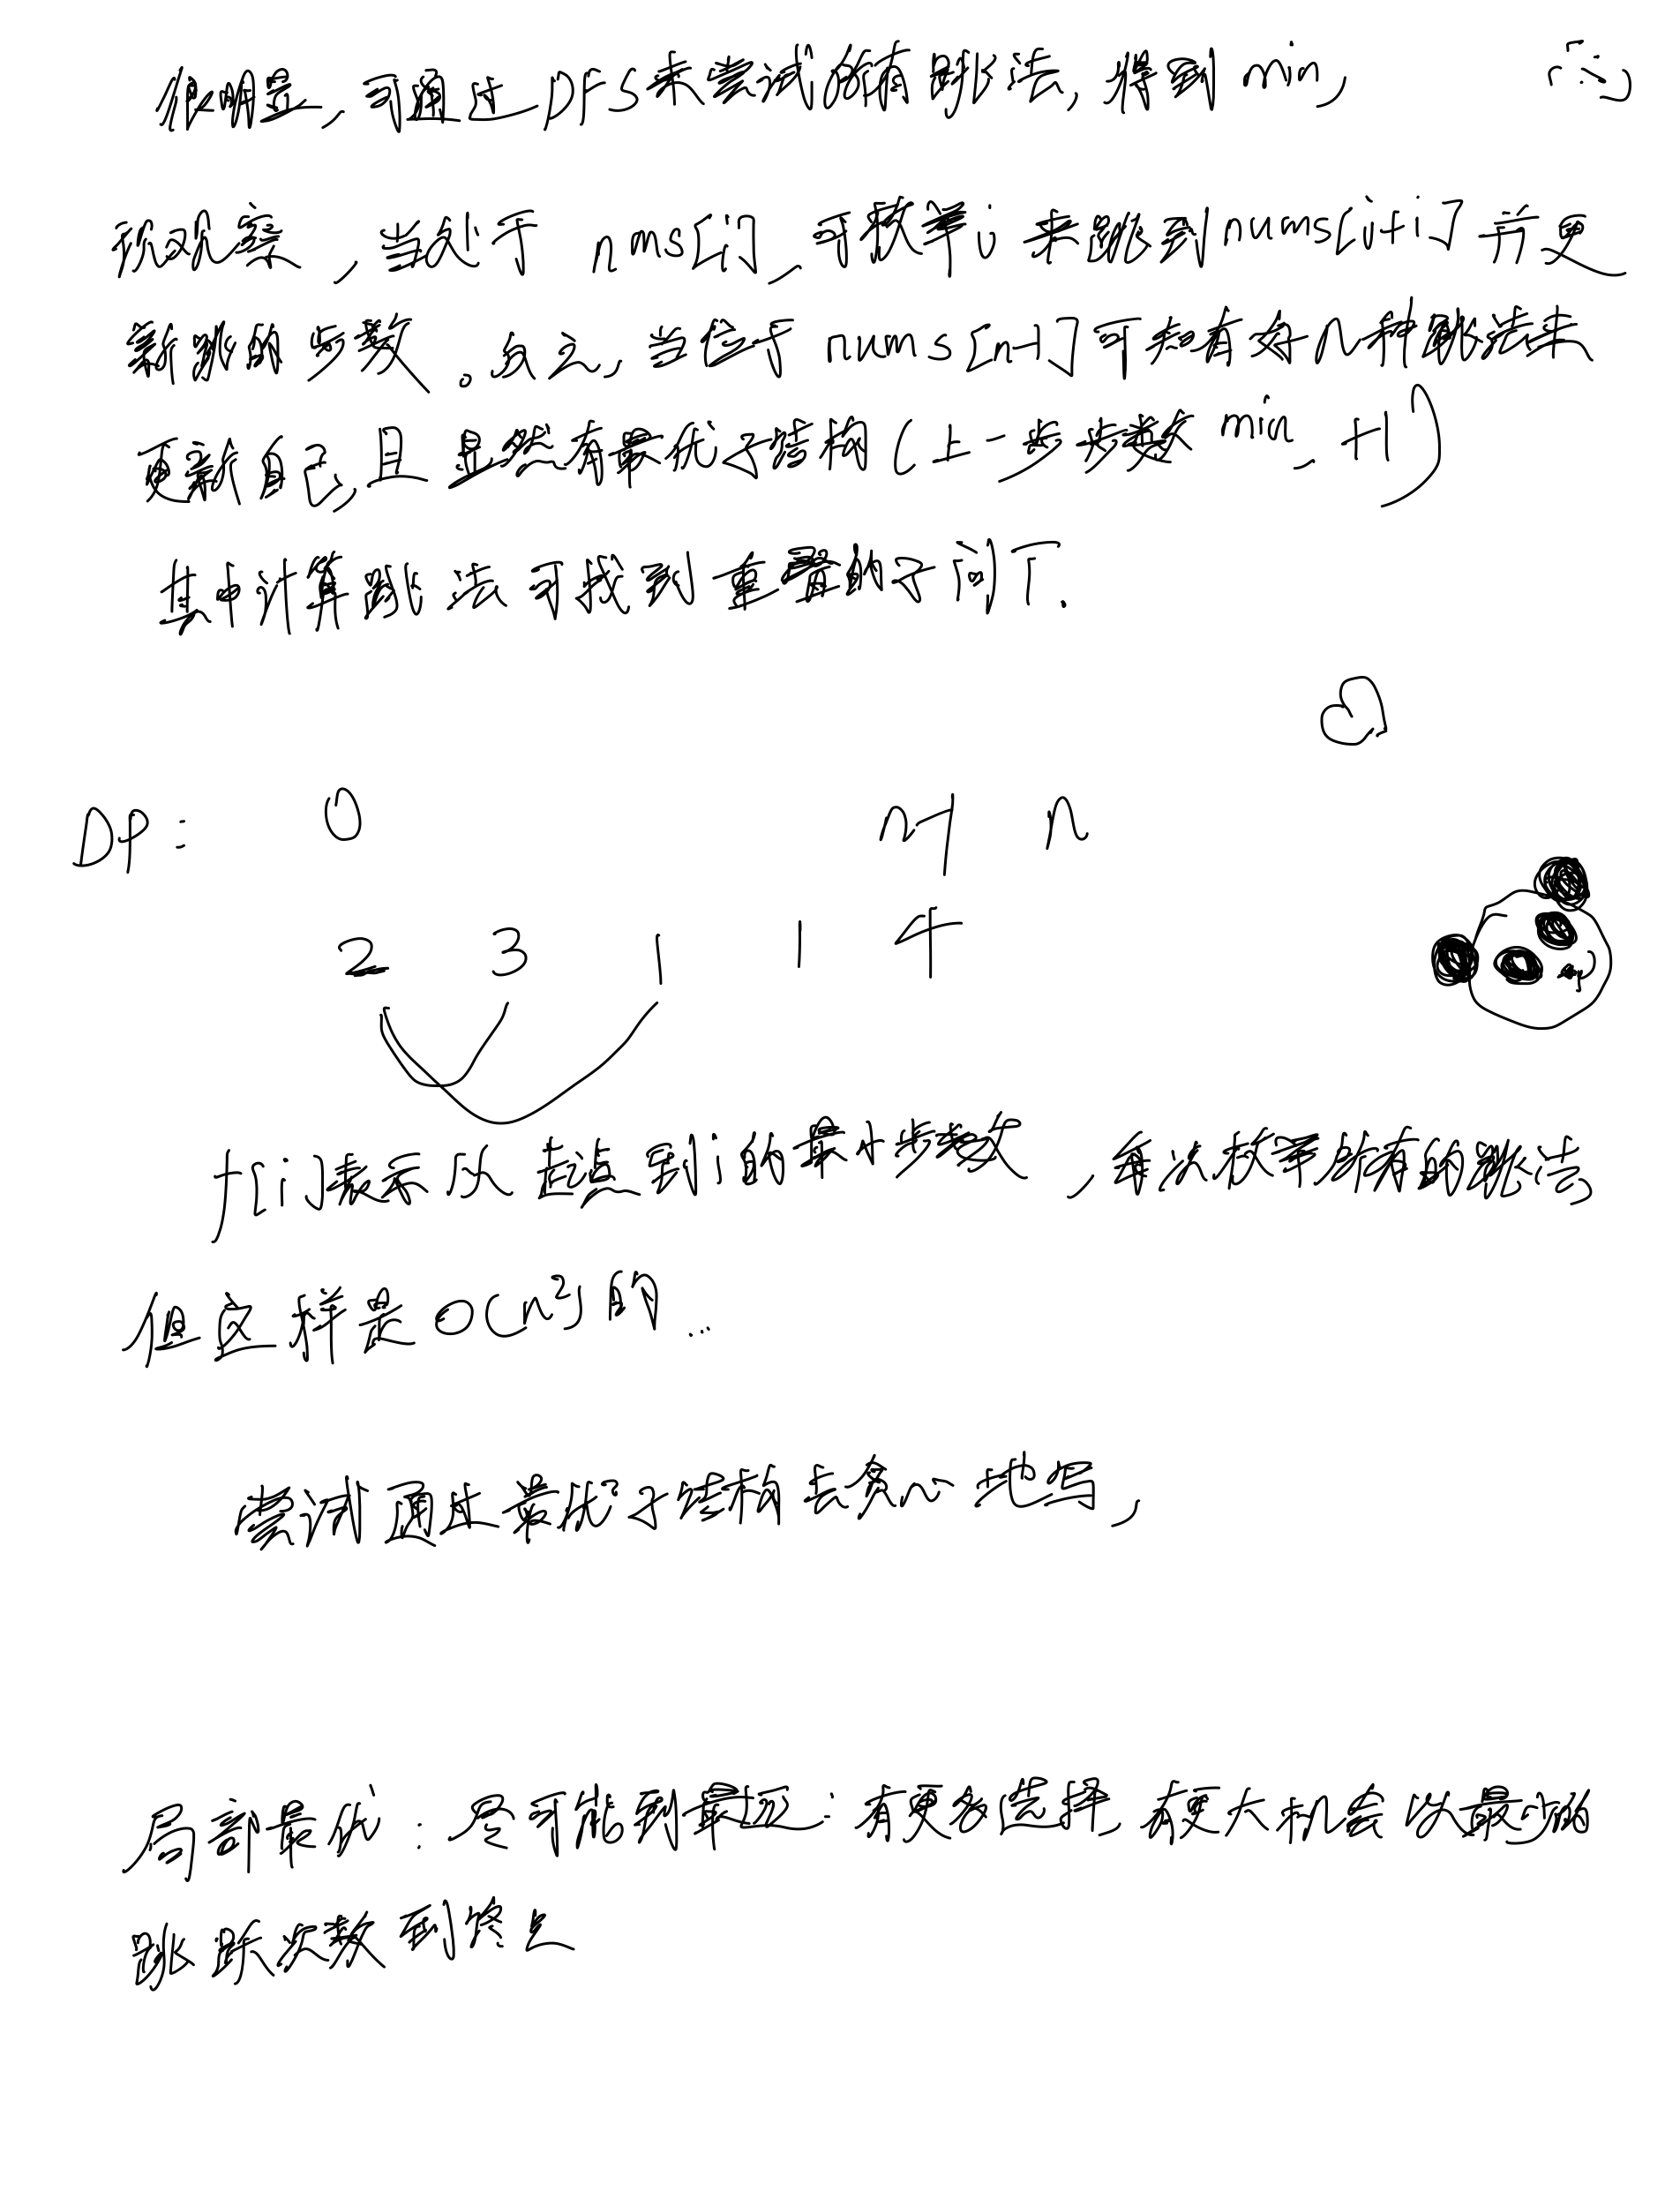 很明显,可通过DFS来尝试所有跳法,得到min,
我观察,当处于 nms[i],可枚举j来跳到nums[j+i]并更
新跳的步数。反之,当位于nums[n-1]可知有好几种跳法来
更新自己,且显然有最优子结构(上一步步数min,+1)
其中计算跳法可找到重叠的子问T.
DP: 0 n-1 n
2 3 1 1 4
f[i]表示从起点到i的最小步数,每次枚举所有的跳法
但这样是O(n²)的...
尝试通过最优子结构去贪心地写,
局部最优:尽可能到最远:有更多选择 有更大机会以最小的
跳跃次数到终点